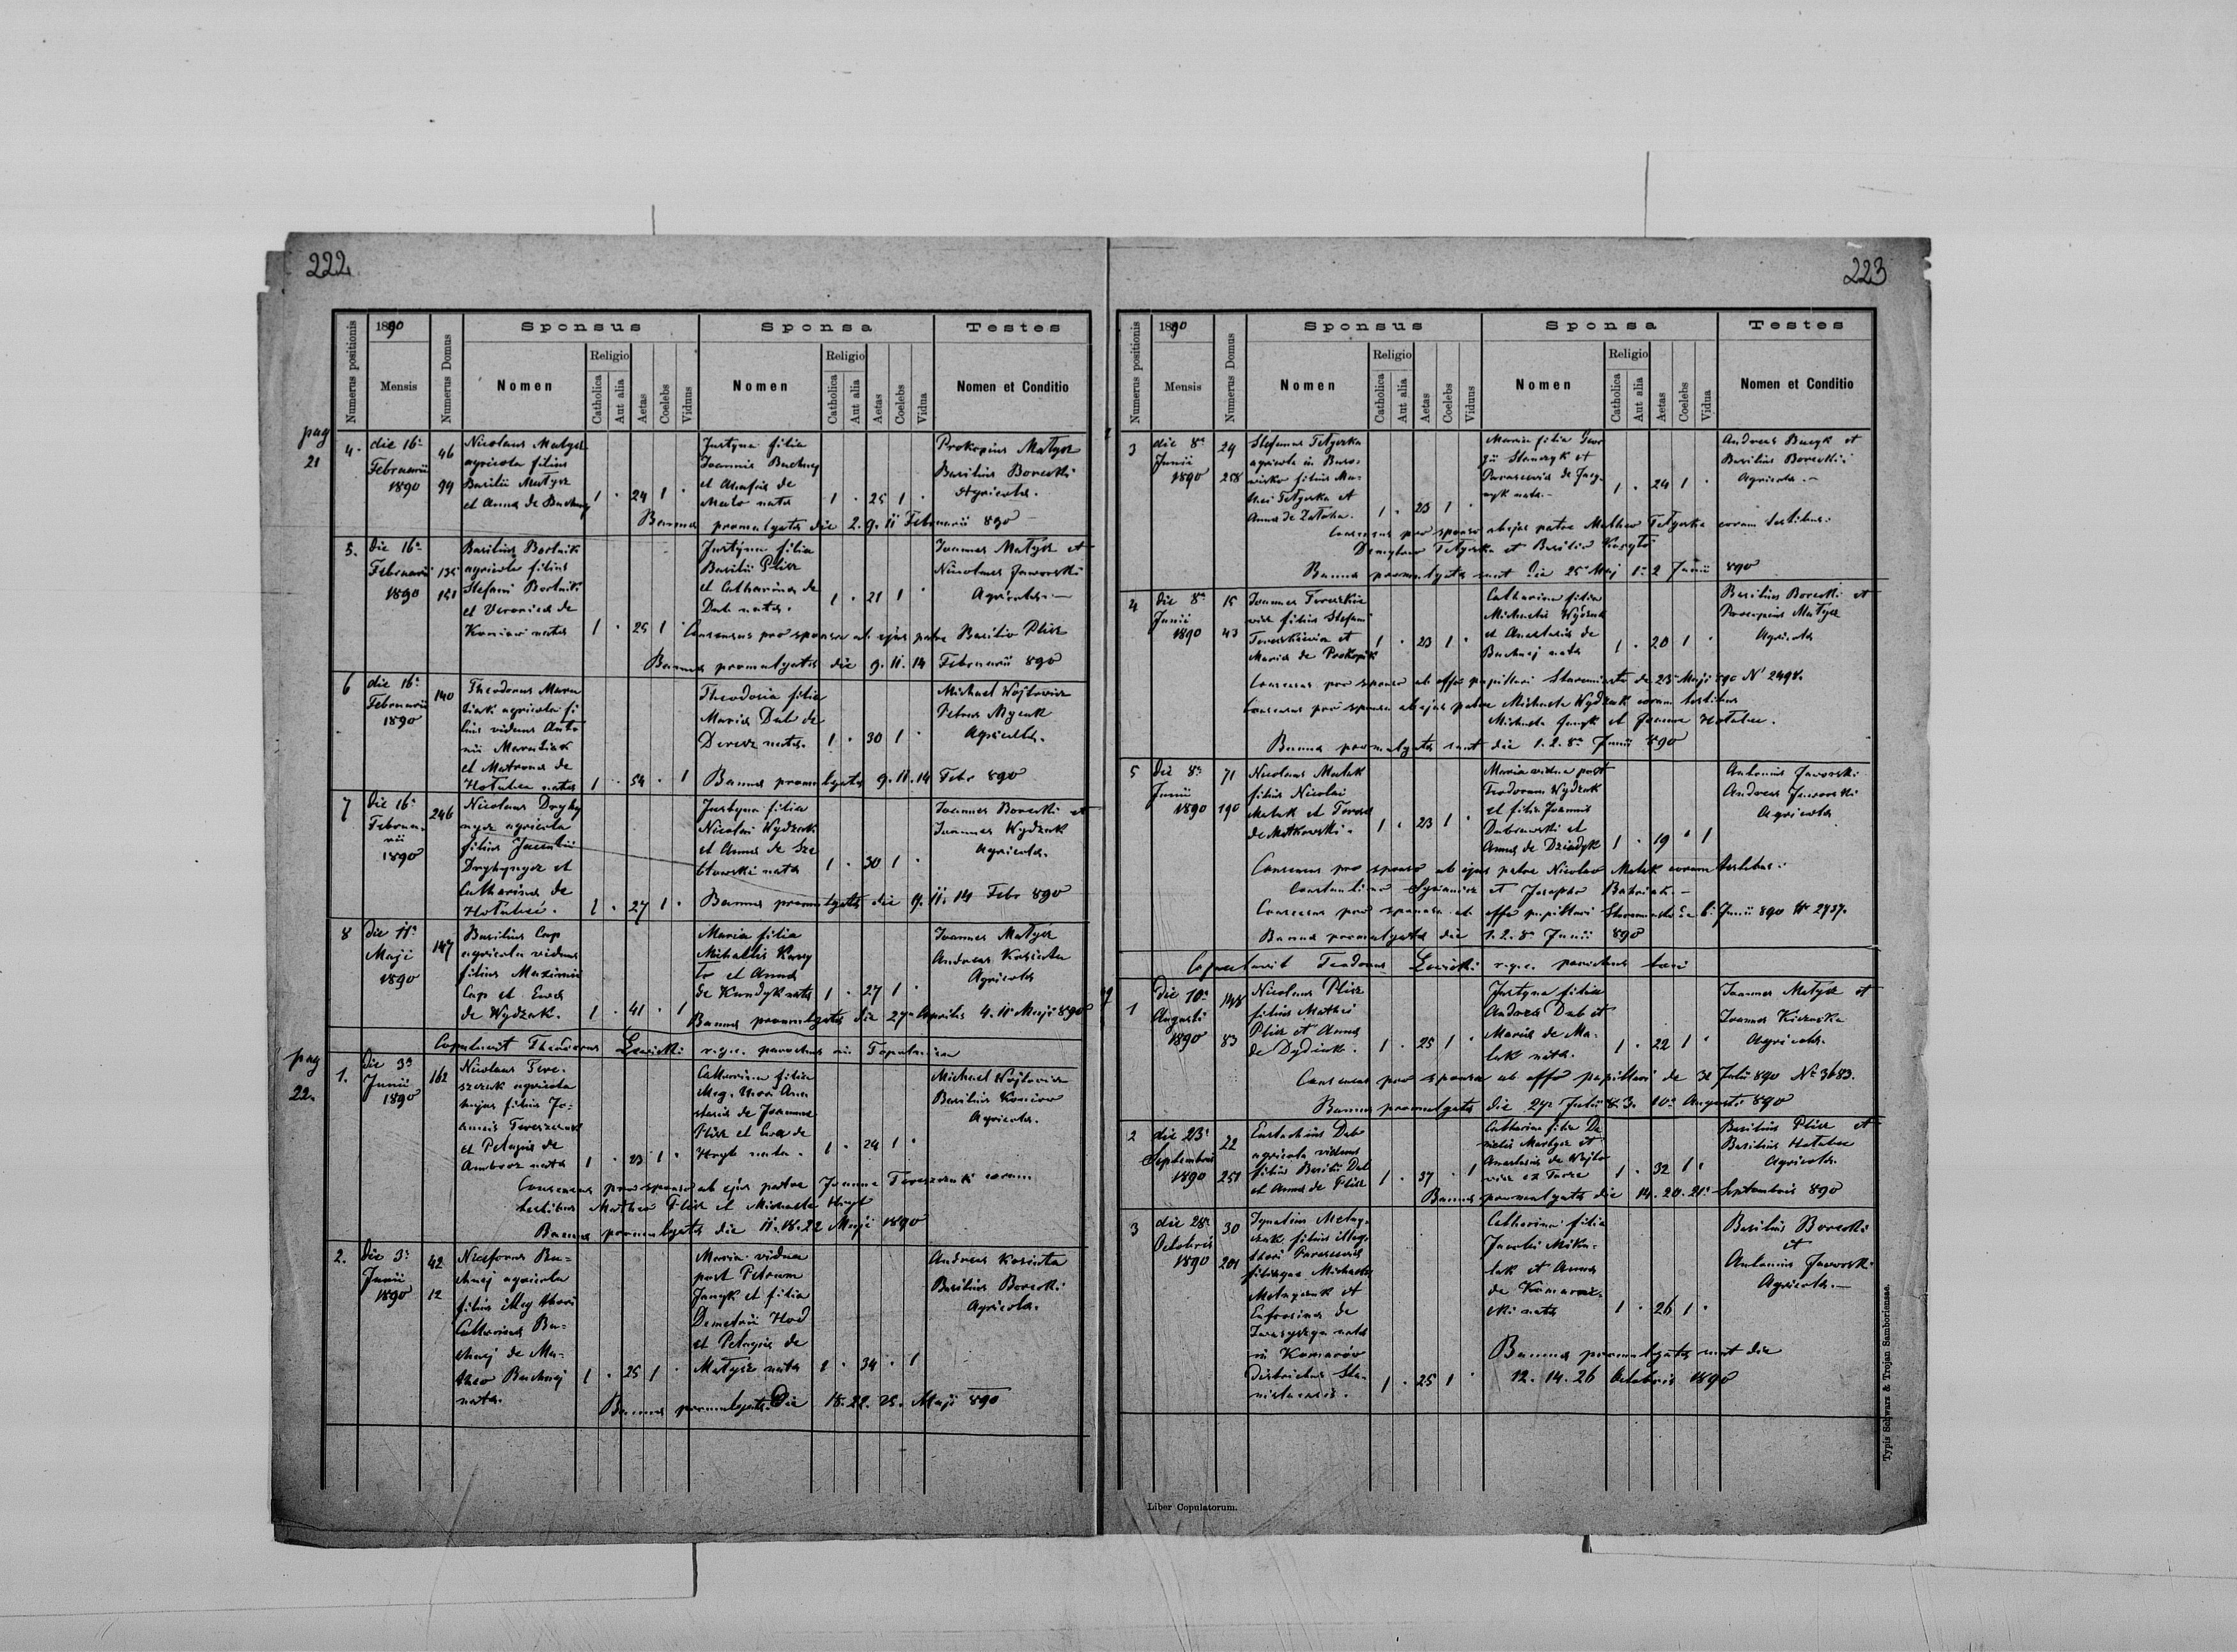 222
1890
Sponsus
Sponsa
Testes
Numerus positionis
Mensis
Numerus Domus
Nomen
Religio
Catholica
Aut alia
Aetas
Coelebs
Viduus
Nomen
Religio
Catholica
Aut alia
Aetas
Coelebs
Vidua
Nomen et Conditio
pag
21
4.
die 16
Februarii
1890
46
94
Nicolaus Matysz
agricola filius
Basilii Matysz
et Anna de Buchnij
1 . 24 1 .
Justyna filia
Joannis Buchnij
et
nata
1 . 25 1 .
Prokopius Matysz
Basilius Borecki
Agricola.
Banna promulgata die 2. 9. 11 Februarii 890
5.
die 16
Februarii
1890
135
151
Basilius Bortnik
agricola filius
Stefani Bortnik
et Veronica de
Koniow nata
1 . 25 1
Justyna filia
Basilii Plisz
et Catharina de
Dub nata.
1 . 21 1 .
Joannes Matysz et
Nicolaus Jaworski
Agricola
Consensus pro sponsa ab ejus patre Basilio Plisz
Banna promulgata die 9. 11. 14 Februarii 890
6
die 16
Februarii
1890
140
Theodorus
agricola fi
lius viduus Anto
nii
et Matrona de
Hotubec nata
1 . 54 . 1
Theodosia filia
Maria Dub de
Deresz nata.
1 . 30 1 .
Michael Wojtowicz
Petrus
Agricola.
Banna promulgata 9. 11. 14 Febr 890
7
die 16
Februa-
rii
1890
246
Nicolaus
agricola
filius
et
Catharina de
Hotubec.
1 . 27 1 .
Justyna filia
Nicolai Wydzak
et Anna de
nata
1 . 30 1 .
Joannes Borecki et
Joannes Wydzak
Agricola.
Banna promulgata die 9. 11. 14 Febr 890
8
die 11
Maji
1890
147
Basilius Cap
agricola viduus
filius Maximi
Cap et Eva
de Wydzak.
1 . 41 . 1
Maria filia
Michaelis
et Anna
de Kundyk nata
1 . 27 1 .
Joannes Matysz
Andreas Kosiuta
Agricola
Banna promulgata die 27 Aprilis 4. 11 Maji 890
Copulavit Theodorus Lewicki r.g.c. parochus in Topolnica
pag
22.
1.
die 3
Junii
1890
162
Nicolaus Tere-
szczuk agricola
hujus filius Jo-
annis Tereszczuk
et Pelagia de
nata
1 . 23 1 .
Catharina filia
illeg. thori Ana-
stasia de Joanne
Plisz et Eva de
Hryb nata.
1 . 24 1 .
Michael Wojtowicz
Basilius Koniow
Agricola.
Consensus pro sponso ab ejus patre Joanne Tereszczuk coram
testibus Matheo Plisz et Michaele Hryb
Banna promulgata die 11. 18. 22 Maji 1890
2.
die 3
Junii
1890
42
12
Niceforus Bu-
chnij agricola
filius illeg thori
Catharina Bu-
chnij de Ma-
theo Buchnij
nata.
1 . 25 1 .
Maria vidua
post Petrum
Janyk et filia
Demetrii Hod
et Pelagia de
Matysz nata
1 . 34 . 1
Andreas Kosiuta
Basilius Borecki
Agricola.
Banna promulgata Die 18. 22. 25. Maji 890
223
1890
Sponsus
Sponsa
Testes
Numerus positionis
Mensis
Numerus Domus
Nomen
Religio
Catholica
Aut alia
Aetas
Coelebs
Viduus
Nomen
Religio
Catholica
Aut alia
Aetas
Coelebs
Vidua
Nomen et Conditio
3
die 8
Junii
1890
29
258
Stefanus Tetyorka
agricola in
filius Ma-
thei Tetyorka et
Anna de
1 . 23 1 .
Maria filia Geor
gii et
Parascevia de
nata.
1 . 24 1 .
Andreas et
Basilius Borecki
Agricola.
Consensus pro sponso ab ejus patre Matheo Tetyorka coram testibus:
Tetyorka et Basilio
Banna promulgata sunt die 25 Maj 1. 2 Junii 890
4
die 8
Junii
1890
15
43
Joannes
filius Stefani
et
Maria de Prokopik
1 . 23 1 .
Catharina filia
Michaelis Wydzak
et Anastasia de
Buchnij nata
1 . 20 1 .
Basilius Borecki et
Procopius Matysz
Agricola
Consensus pro sponso ab offo pupillari de 23 Maji 890 N 2498.
Consensus pro sponsa ab ejus patre Michaele Wydzak coram testibus
Michaele Janyk et Joanne Hotubec.
Banna promulgata sunt die 1. 2. 8 Junii 890
5
die 8
Junii
1890
71
190
Nicolaus Malak
filius Nicolai
Malak et
de Matkowski.
1 . 23 1 .
Maria vidua post
Teodorum Wydzak
et filia Joannis
Dubrawski et
Anna de
1 . 19 . 1
Antonius Jaworski
Andreas Jaworski
Agricola
Consensus pro sponso ab ejus patre Nicolao Malak coram testibus:
Constantino et Josepho
Consensus pro sponsa ab offo pupillari de 6 Junii 890 N 2737.
Banna promulgata die 1. 2. 8 Junii 890
Copulavit Teodorus Lewicki r.g.c. parochus loci
1
die 10
Augusti
1890
148
83
Nicolaus Plisz
filius Mathei
Plisz et Anna
de
1 . 25 1 .
Justyna filia
Andrea Dub et
Maria de Ma-
lak nata.
1 . 22 1 .
Joannes Matysz et
Joannes
Agricola.
Consensus pro sponsa ab offo pupillari de Julii 890 N 3683.
Banna promulgata die 27 Julii 3. 10 Augusti 890
2
die 23
Septembris
1890
22
251
Eustachius Dub
agricola viduus
filius Basilii Dub
et Anna de Plisz
1 . 37 . 1
Catharina filia Da
nielis et
Anastasia de Wojto
wicz ex
1 . 32 1 .
Basilius Plisz et
Basilius Hotubec
Agricola.
Banna promulgata die 14. 20. 21 Septembris 890
3
die 28
Octobris
1890
30
201
Ignatius
filius illeg.
thori Parascevia
filiaque Michaelis
et
Eufrosina de
nata
in Komarów
Districtus Sta-
nislaensis.
1 . 25 1 .
Catharina filia
Jacobi Miku-
lak et Anna
de Komarni-
cki nata
1 . 26 1 .
Basilius Borecki
et
Antonius Jaworski
Agricola.
Banna promulgata sunt die
12. 14. 26 Octobris 1890
Liber Copulatorum.
Typis Schwarz & Trojan Samboriensae.